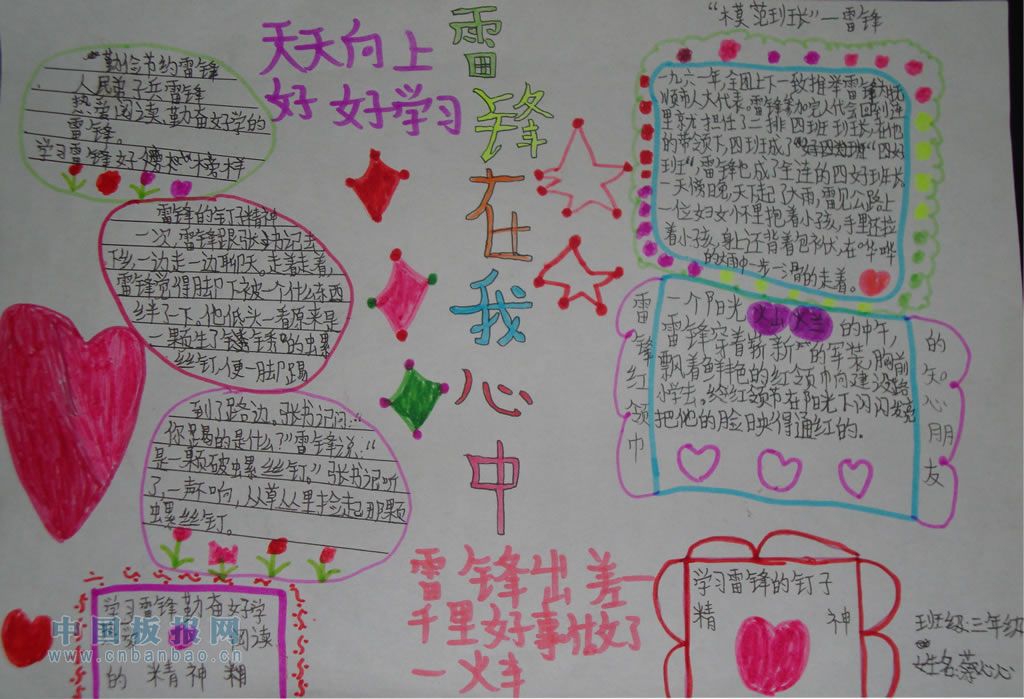 雷锋在我心中
天天向上
好好学习
勤俭节约雷锋
人民弟子兵雷锋
热爱阅读、勤奋好学的
雷锋。
学习雷锋好榜样
雷锋的钉子精神
一次,雷锋跟张书记去
下乡一边走一边聊天。走着走着,
雷锋觉得脚下被一个什么东西
绊了一下。他低头一看原来是
一颗生了锈的螺
丝钉,便一脚踢
到了路边。张书记问:“
你踢的是什么?”雷锋说:“
是一颗破螺丝钉。”张书记听
了,一声不响,从草丛里捡起那颗
螺丝钉。
学习雷锋勤奋好学
阅读
的 精神
中国板报网
www.cnbanbao.cn
雷锋出差一
千里好事做了
一火车
“模范班长”—雷锋
一九六一年,全团上下一致推举雷锋为抚
顺市人大代表,雷锋参加完人代会回到连
里就担任了二排四班班长,在他
的带领下,四班成了“四好
班”,雷锋也成了全连的四好班长。
一天傍晚,天下起了大雨,雷锋见公路上
一位妇女怀里抱着小孩,手里还拉
着小孩,身上还背着包袱,在哗哗
的大雨中一步一滑的走着。
雷锋红领巾
的知心朋友
一个阳光火山火兰的中午,
雷锋穿着崭新的军装,胸前
飘着鲜艳的红领巾向建设路
小学走,红领巾在阳光下闪闪发亮
把他的脸映得通红的.
学习雷锋的钉子
精 神
班级:三年级
姓名:蔡心心